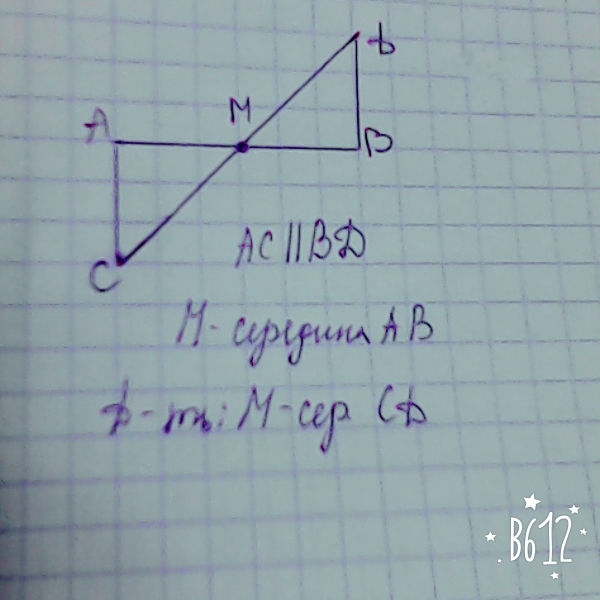 D
M
A
B
C
AC || BD
M - середина AB
D - ть: M - сер CD
B612